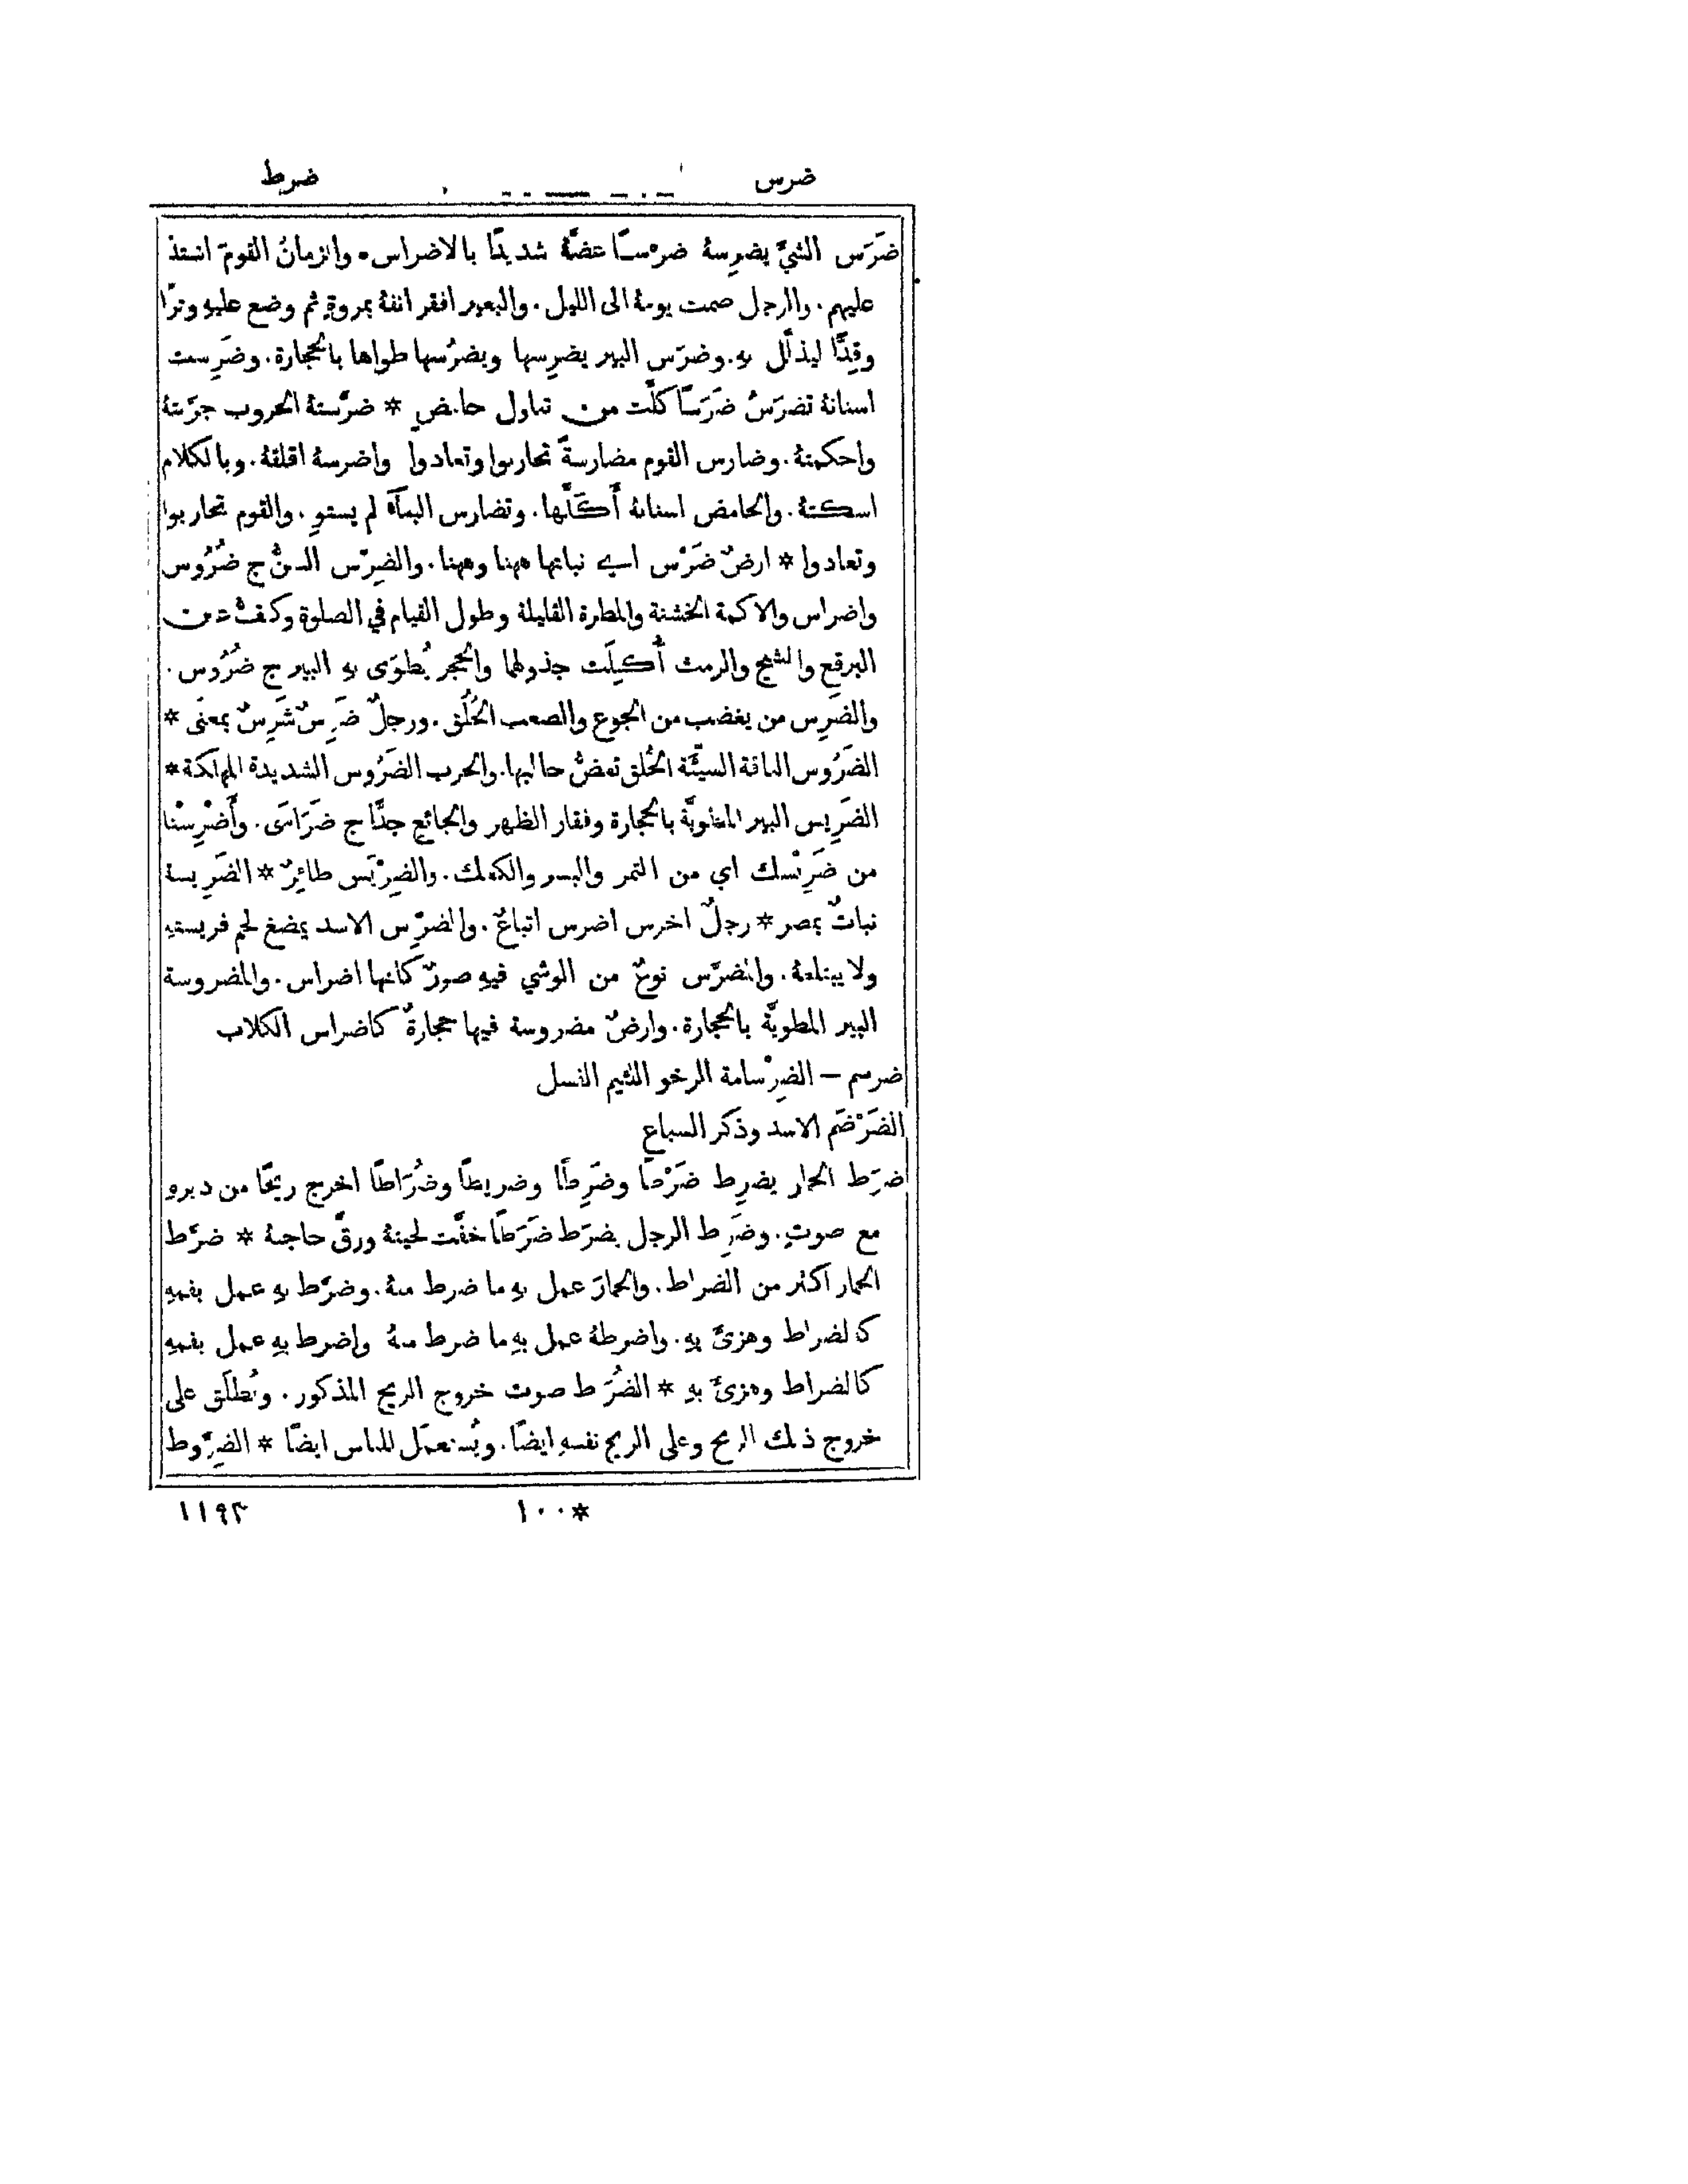 ضرس ضرط
ضَرَس الشيَّ يضرِسهُ ضرْسًا عضَّهُ شديدًا بالاضراس. والزمانُ القومَ اشتدَّ
عليهم. والرجل صمت يومهُ الى الليل. والبعير افقر انفهُ بمروةٍ ثم وضع عليهِ وترًا
وقِدًّا ليذلّل بهِ. وضرَس البير يضرِسها ويضرُسها طواها بالحجارة. وضَرِست
اسنانهُ تضرَسُ ضَرَسًا كلَّت من تناول حامضٍ * ضرَّستهُ الحروب جرَّبتهُ
واحكمتهُ. وضارس القوم مضارسةً تحاربوا وتعادوا واضرسهُ اقلقهُ. وبالكلام
اسكتهُ. والحامض اسنانهُ أَكَلَّها. وتضارس البناءُ لم يستوِ. والقوم تحاربوا
وتعادوا * ارضٌ ضَرْس اي نباتها ههنا وههنا. والضِرْس السنُّ ج ضُرُوس
واضراس والاكمة الخشنة والمطرة القليلة وطول القيام في الصلوة وكفُّ عين
البرقع والشيح والرمث أُكِلَت جذولها والحجر يُطوَى بهِ البير ج ضُرُوس.
والضَرِس من يغضب من الجوع والصعب الخُلُق. ورجلٌ ضَرِسٌ شَرِسٌ بمعنًى *
الضَرُوس الناقة السيّئة الخُلق تعضُّ حالبها. والحرب الضَرُوس الشديدة المهلكة *
الضَرِيس البير المطويَّة بالحجارة وفقار الظهر والجائع جدًّا ج ضَرَاسَى. وأَضْرِسْنا
من ضَرِيْسك اي من التمر والبسر والكعك. والضِرْيَس طائِرٌ * الضَرِيسة
نباتٌ بمصر * رجلٌ اخرس اضرس اتباعٌ. والمضرِّس الاسد يمضغ لحم فريستهِ
ولا يبتلعهُ. والمضرَّس نوعٌ من الوشي فيهِ صورٌ كانها اضراس. والمضروسة
البير المطويَّة بالحجارة. وارضٌ مضروسة فيها حجارةٌ كاضراس الكلاب
ضرسم – الضِرْسامة الرخو اللئيم النسل
الضَرْضَم الاسد وذكر السباع
ضرَِط الحمار يضرِط ضَرْطًا وضَرِطًا وضريطًا وضُرَاطًا اخرج ريحًا من دبرهِ
مع صوتٍ. وضَرِط الرجل يضرَط ضَرَطًا خفَّت لحيتهُ ورقَّ حاجبهُ * ضرَّط
الحمار اكثر من الضراط. والحمارَ عمل بهِ ما ضرط منهُ. وضرَّط بهِ عمل بفمهِ
كالضراط وهزئَ بهِ. واضرطهُ عمل بهِ ما ضرط منهُ واضرط بهِ عمل بفمهِ
كالضراط وهزئَ بهِ * الضُرَاط صوت خروج الريح المذكور. ويُطلَق على
خروج ذلك الريح وعلى الريح نفسهِ ايضًا. ويُستعمَل للناس ايضًا * الضِرَّوط
*١٠٠ ١١٩٣